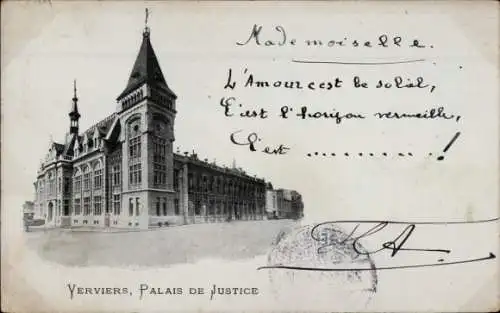 Mademoiselle.
L'Amour c'est le soleil,
C'est l'horizon vermeille,
C'est ............ !
VERVIERS, PALAIS DE JUSTICE